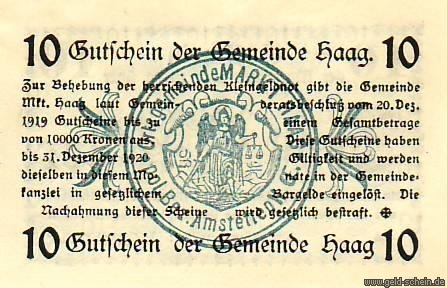 10 Gutschein der Gemeinde Haag. 10
Zur Behebung der herrschenden Kleingeldnot gibt die Gemeinde
Mkt. Haag laut Gemein- deratsbeschluß vom 20. Dez.
1919 Gutscheine bis zu einem Gesamtbetrage
von 10000 Kronen aus. Diese Gutscheine haben
bis 31. Dezember 1920 Gültigkeit und werden
dieselben in diesem Mo- nate in der Gemeinde-
kanzlei in gesetzlichem Bargelde eingelöst. Die
Nachahmung dieser Scheine wird gesetzlich bestraft.
10 Gutschein der Gemeinde Haag 10
Gemeinde MARKT
Bez. Amstetten
www.geld-schein.de